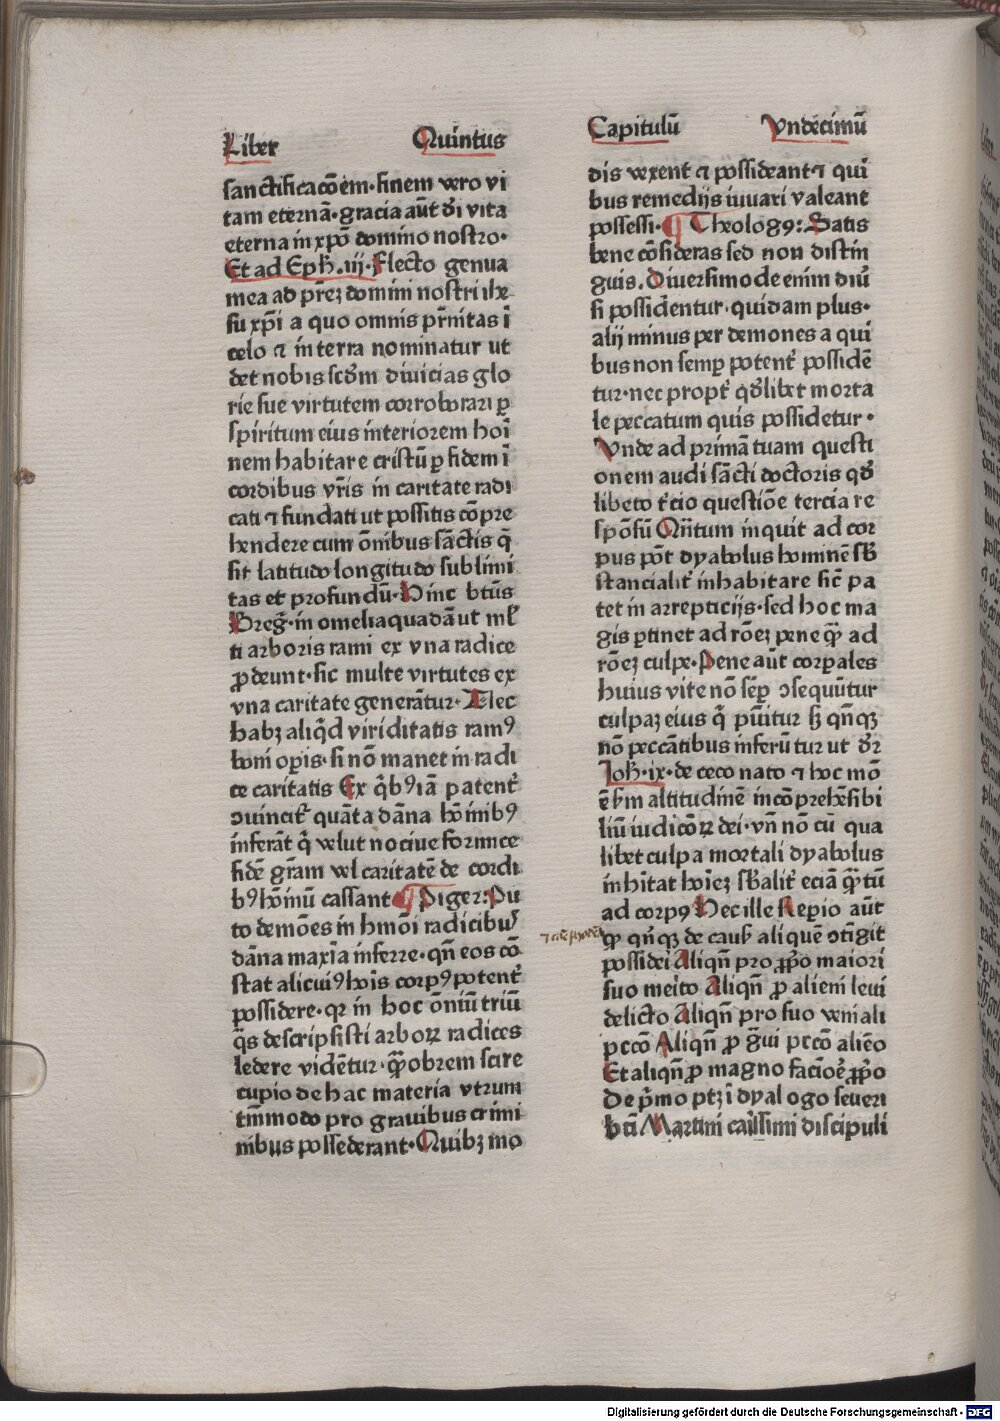 Liber Quintus
sanctificacōem·finem vero vi
tam eternā·gracia aūt dī vita
eterna in xpō domino nostro·
Et ad Eph.iij·Flecto genua
mea ad prēꝫ domini nostri ihe
su xp̄i a quo omnis pr̄nitas ī
celo ⁊ in terra nominatur ut
det nobis scd̄m diuicias glo
rie sue virtutem corroborari ꝑ
spiritum eius interiorem hoī
nem habitare cristū ꝑ fidem ī
cordibus vr̄is in caritate radi
cati ⁊ fundati ut possitis cōpre
hendere cum ōnibus sāctis q̄
sit latitudo longitudo sublimi
tas et profundū·Hinc btūs
Greg̃·in omelia quadā ut ml̄
ti arboris rami ex vna radice
ꝓdeunt·sic multe virtutes ex
vna caritate generātur·Nec
habꝫ aliq̄d viriditatis ramꝰ
boni oꝑis·si nō manet in radi
ce caritatis Ex q̄bꝰ iā patent̄
ↄuincit̄ quāta dāna hōinibꝰ
inferāt q̄ velut nociue formice
fidē gr̄am vel caritatē de cordi
bꝰ hōinū cassant ¶ Piger:Pu
to demōes in hmōi radicibuꝰ
dāna maxīa inferre·qn̄ eos cō
stat alicuiꝰ hoīs corpꝰ potent̄
possidere·qꝛ in hoc ōniū triū
q̄s descripsisti arboꝝ radices
ledere vidētur·q̄obrem scire
cupio de hac materia vtrum
tm̄modo pro grauibus crimi
nibus possederant·Quibꝫ mo
Capitulū Vndecimū
dis vexent ⁊ possideant ⁊ qui
bus remedijs iuuari valeant
possessi·¶ Theologꝰ:Satis
bene cōsideras sed non distin
guis.Diuersimode enim diu
si possidentur·quidam plus·
alij minus per demones a qui
bus non semꝑ potent̄ possidē
tur·nec propt̄ qd̄libet morta
le peccatum quis possidetur·
Vnde ad primā tuam questi
onem audi sācti doctoris qd̄
libeto t̄cio questiōe tercia re
spōsū Quātum inquit ad cor
pus pōt dyabolus hominē sb̄
stancialit̄ inhabitare sic̄ pa
tet in arrepticijs·sed hoc ma
gis ꝑtinet ad rōeꝫ pene q̄ ad
rōeꝫ culpe·Pene aūt corꝑales
huius vite nō sēꝑ ↄsequūtur
culpaꝫ eius q̄ pūitur sꝫ qn̄qꝫ
nō peccātibus inferūtur ut dr̄
Joh·ix·de ceco nato ⁊ hoc mō
ē s̄m altitudinē incōprehēsibi
liū iudicōꝝ dei·vn̄ nō cū qua
libet culpa mortali dyabolus
inhītat hoīeꝫ sb̄alit̄ eciā q̄tū
ad corpꝰ Hec ille Reperio aūt
ꝙ qn̄qꝫ de cauſ aliquē ↄtīgit
possidei Aliqn̄ pro ꝓpō maiori
suo meito Aliqn̄ ꝓ alieni leui
delicto Aliqn̄ pro suo veniali
pccō Aliqn̄ ꝓ gūi pccō aliēo
Et aliqn̄ ꝓ magno facīoē ꝓpō
De pͥmo ptꝫ ī dyalogo seueri
bt̄i Martini cāissimi discipuli